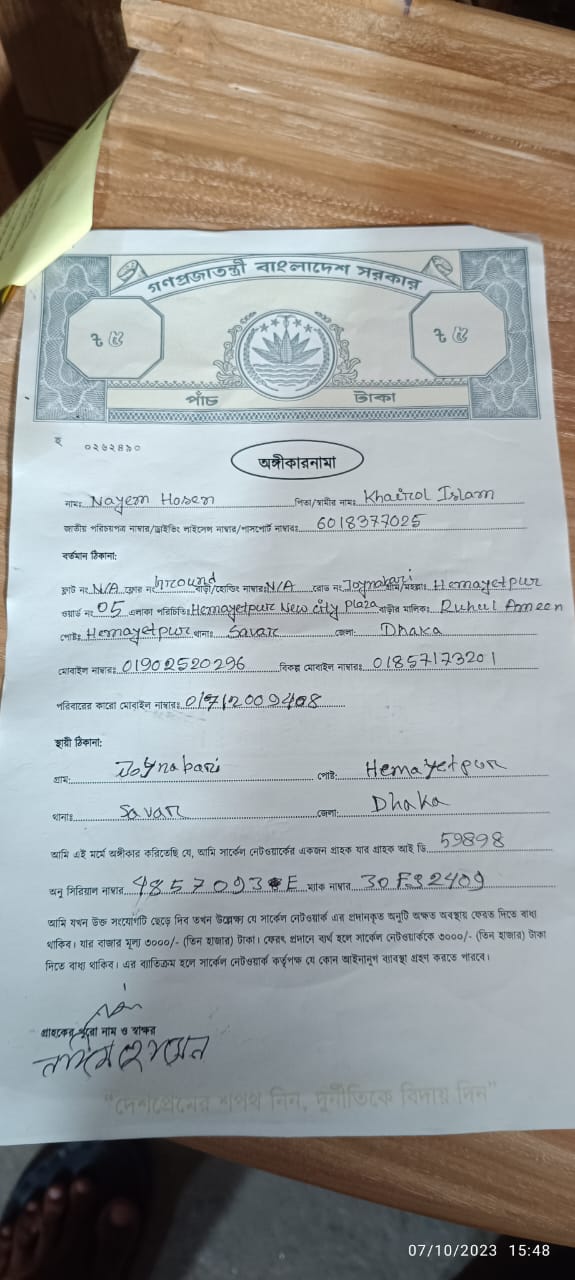 গণপ্রজাতন্ত্রী বাংলাদেশ সরকার
৳ ৫ ৳ ৫
পাঁচ টাকা
০২৬২৪৯০
অঙ্গীকারনামা
নামঃ Nayem Hosen পিতা/স্বামীর নামঃ Khairol Islam
জাতীয় পরিচয়পত্র নাম্বার/ড্রাইভিং লাইসেন্স নাম্বার/পাসপোর্ট নাম্বারঃ 6018377025
বর্তমান ঠিকানা:
ফ্লাট নং N/A ফ্লোর নং বাড়ী/হোল্ডিং নাম্বারঃ N/A রোড নং Joynabari গ্রাম/মহল্লাঃ Hemayetpur
ওয়ার্ড নং 05 এলাকা পরিচিতিঃ Hemayetpur New city Plaza বাড়ীর মালিকঃ Ruhul Ameen
পোষ্টঃ Hemayetpur থানাঃ Savar জেলা: Dhaka
মোবাইল নাম্বারঃ 01902520296 বিকল্প মোবাইল নাম্বারঃ 01857173201
পরিবারের কারো মোবাইল নাম্বারঃ
স্থায়ী ঠিকানা:
গ্রামঃ Joynabari পোষ্ট: Hemayetpur
থানাঃ Savar জেলা: Dhaka
আমি এই মর্মে অঙ্গীকার করিতেছি যে, আমি সার্কেল নেটওয়ার্কের একজন গ্রাহক যার গ্রাহক আই ডি 59898
অনু সিরিয়াল নাম্বার 4857093 E ম্যাক নাম্বার 30FS2409
আমি যখন উক্ত সংযোগটি ছেড়ে দিব তখন উল্লেক্ষ্য যে সার্কেল নেটওয়ার্ক এর প্রদানকৃত অনুটি অক্ষত অবস্থায় ফেরত দিতে বাধ্য
থাকিব। যার বাজার মূল্য ৩০০০/- (তিন হাজার) টাকা। ফেরৎ প্রদানে ব্যর্থ হলে সার্কেল নেটওয়ার্ককে ৩০০০/- (তিন হাজার) টাকা
দিতে বাধ্য থাকিব। এর ব্যাতিক্রম হলে সার্কেল নেটওয়ার্ক কর্তৃপক্ষ যে কোন আইনানুগ ব্যাবস্থা গ্রহণ করতে পারবে।
গ্রাহকের পুরো নাম ও স্বাক্ষর
নাঈম হোসেন
“দেশপ্রেমের শপথ নিন, দুর্নীতিকে বিদায় দিন”
07/10/2023 15:48